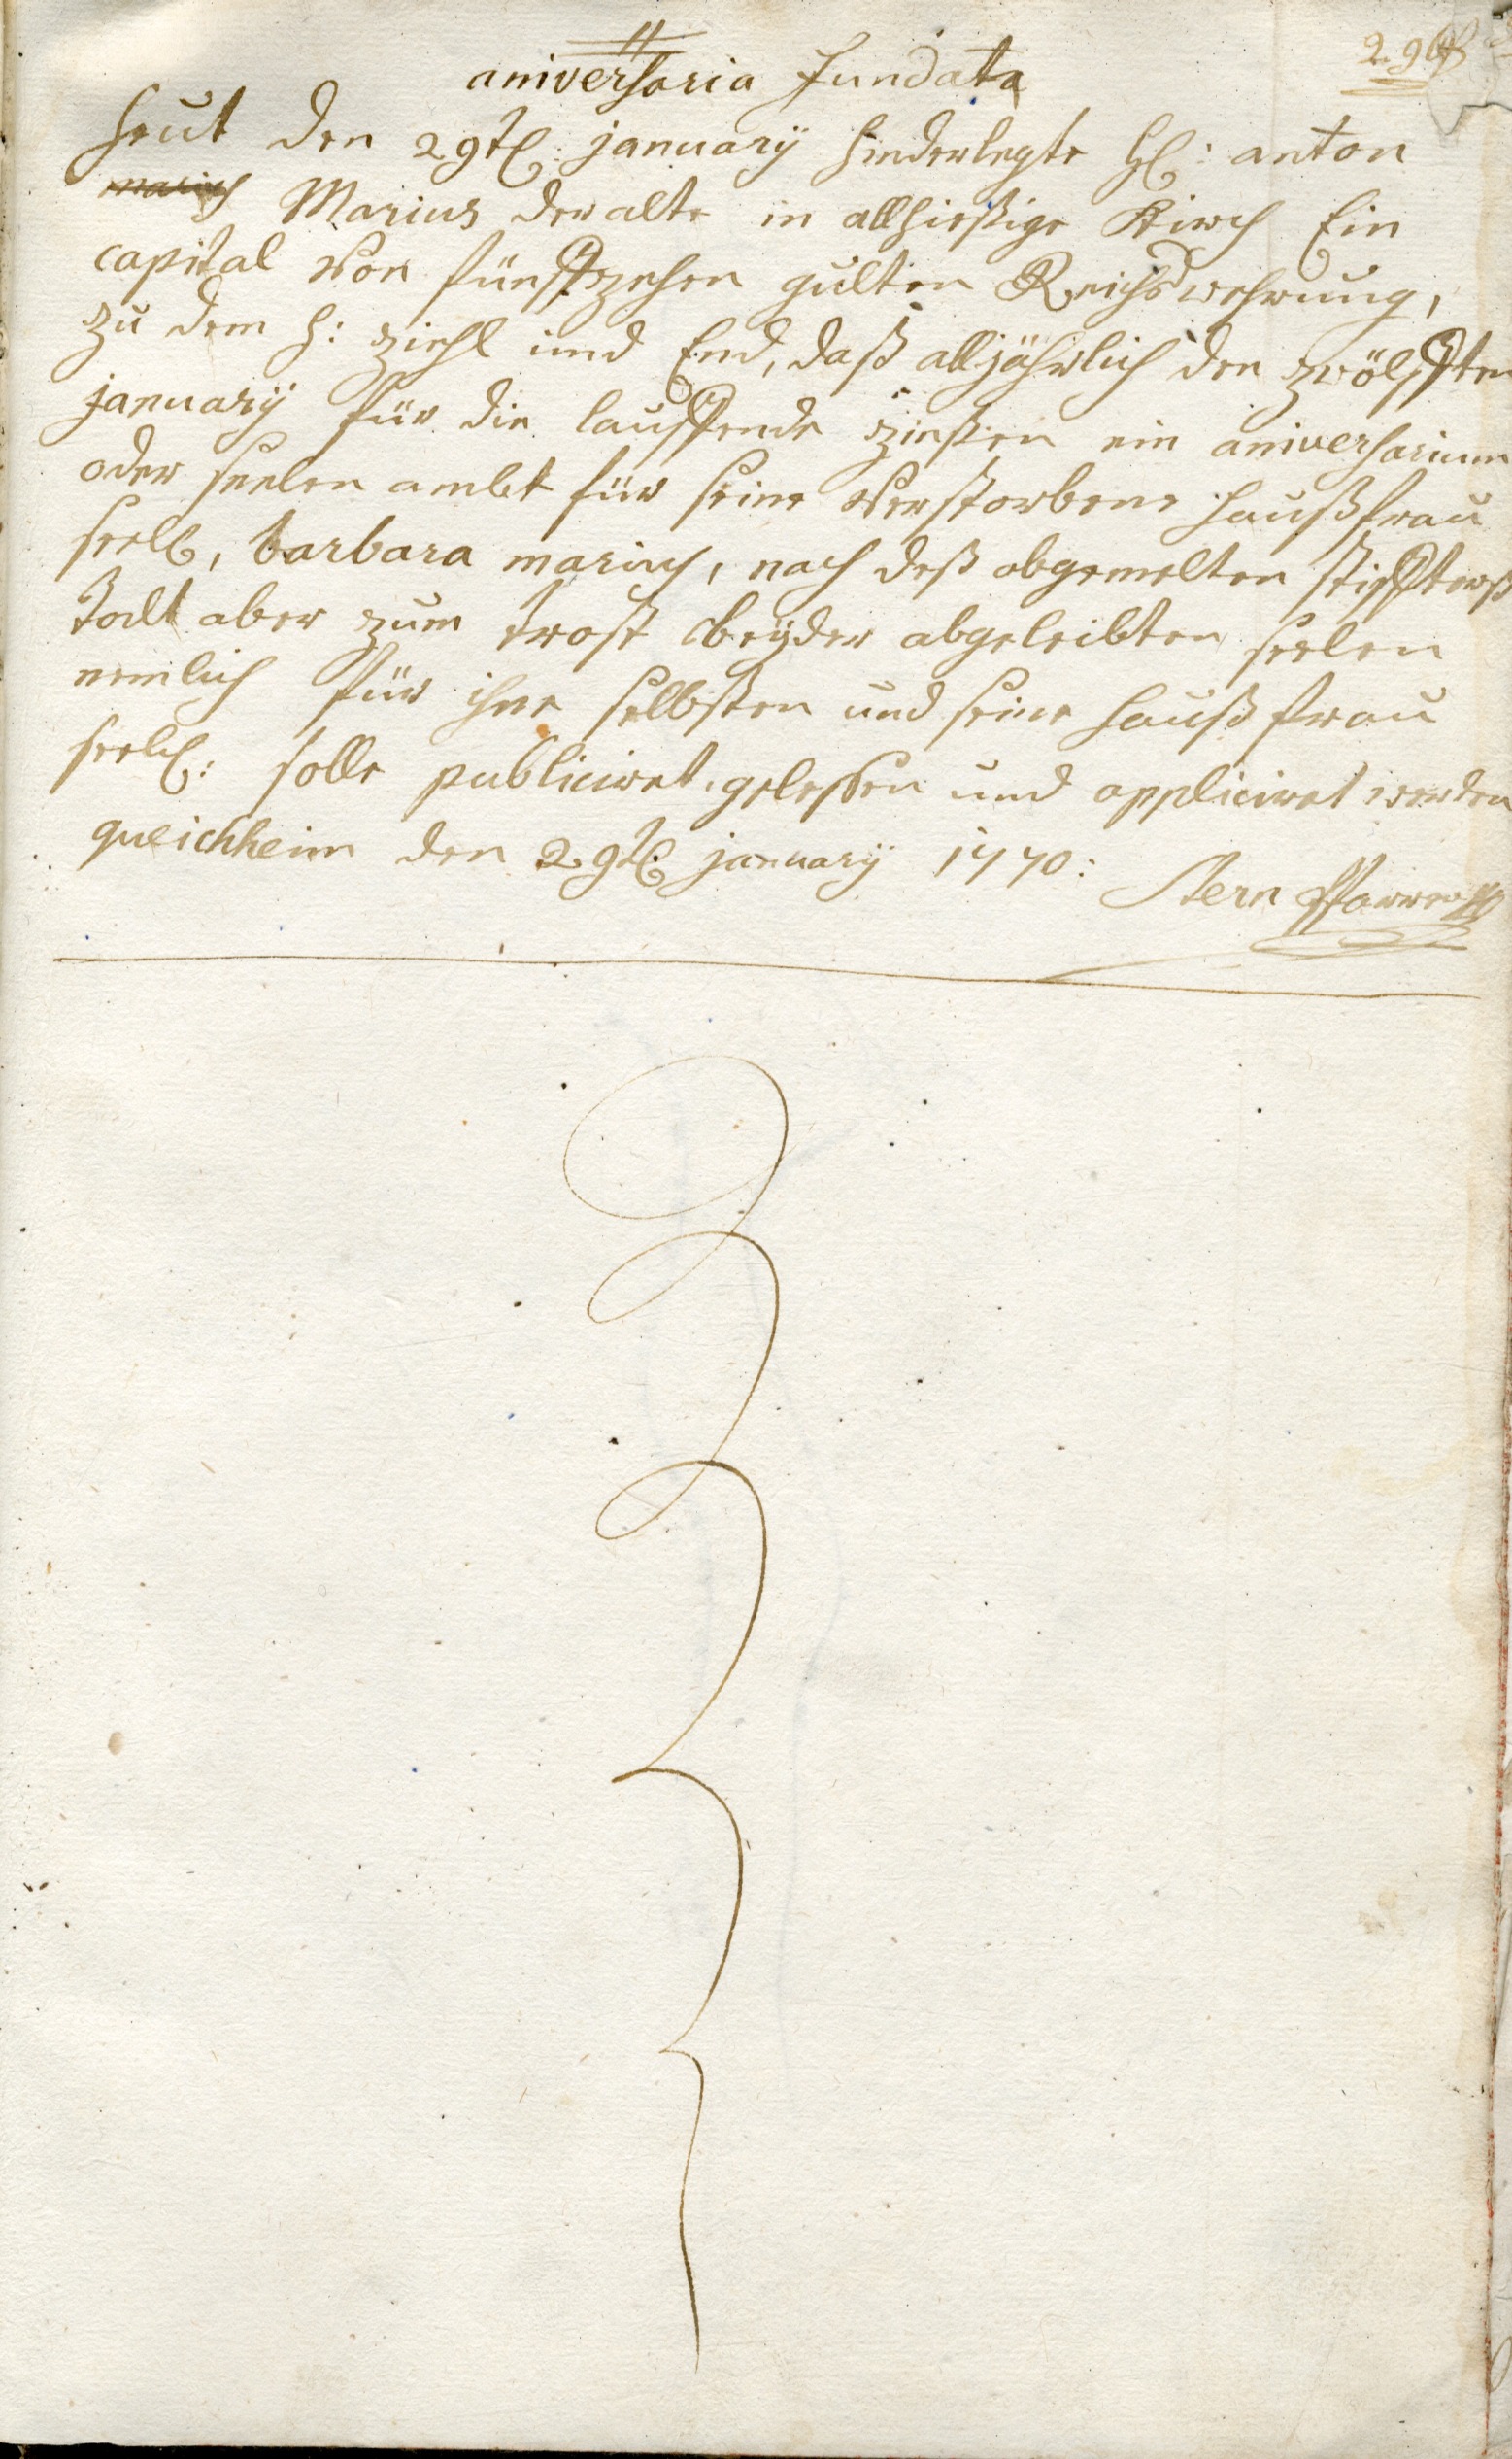 aniversaria fundata
heut den 29t: january hinderlegte H: anton
Marius der alte in allhießige Kirch Ein
capital von fünffzehen gulten Reichswehrung,
zu dem h: ziehl und End, daß alljährlich den zwölfften
january für die lauffende zinßen ein aniversarium
oder seelen ambt für seine verstorbene haußfrau
seel, barbara mariin, nach deß obgemelten stiffterß
todt aber zum trost beÿder abgeleibten seelen
nemlich für ihne selbsten und seine haußfrau
seel: solle publiciret, gelessen und appliciret werden
queichheim den 29t january 1770:
Stern Pfarrer